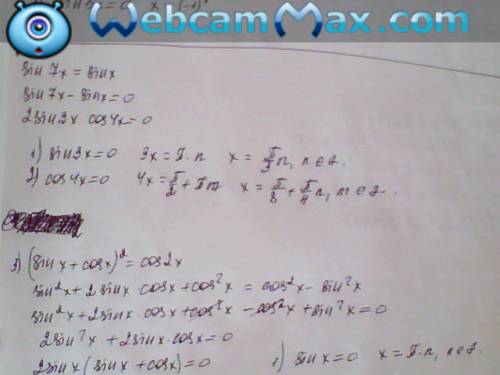 WebcamMax.com
sin 7x = sinx
sin 7x - sinx = 0
2 sin 3x cos 4x = 0
1) sin 3x = 0 3x = π·n x = π/3 n, n ∈ z.
2) cos 4x = 0 4x = π/2 + πn x = π/8 + π/4 n, n ∈ z.
3) (sin x + cos x)² = cos 2x
sin²x + 2 sinx cosx + cos²x = cos²x - sin²x
sin²x + 2sinx cosx + cos²x - cos²x + sin²x = 0
2 sin²x + 2 sinx·cosx = 0
2 sin x (sin x + cosx) = 0 1) sin x = 0 x = π·n, n ∈ z.